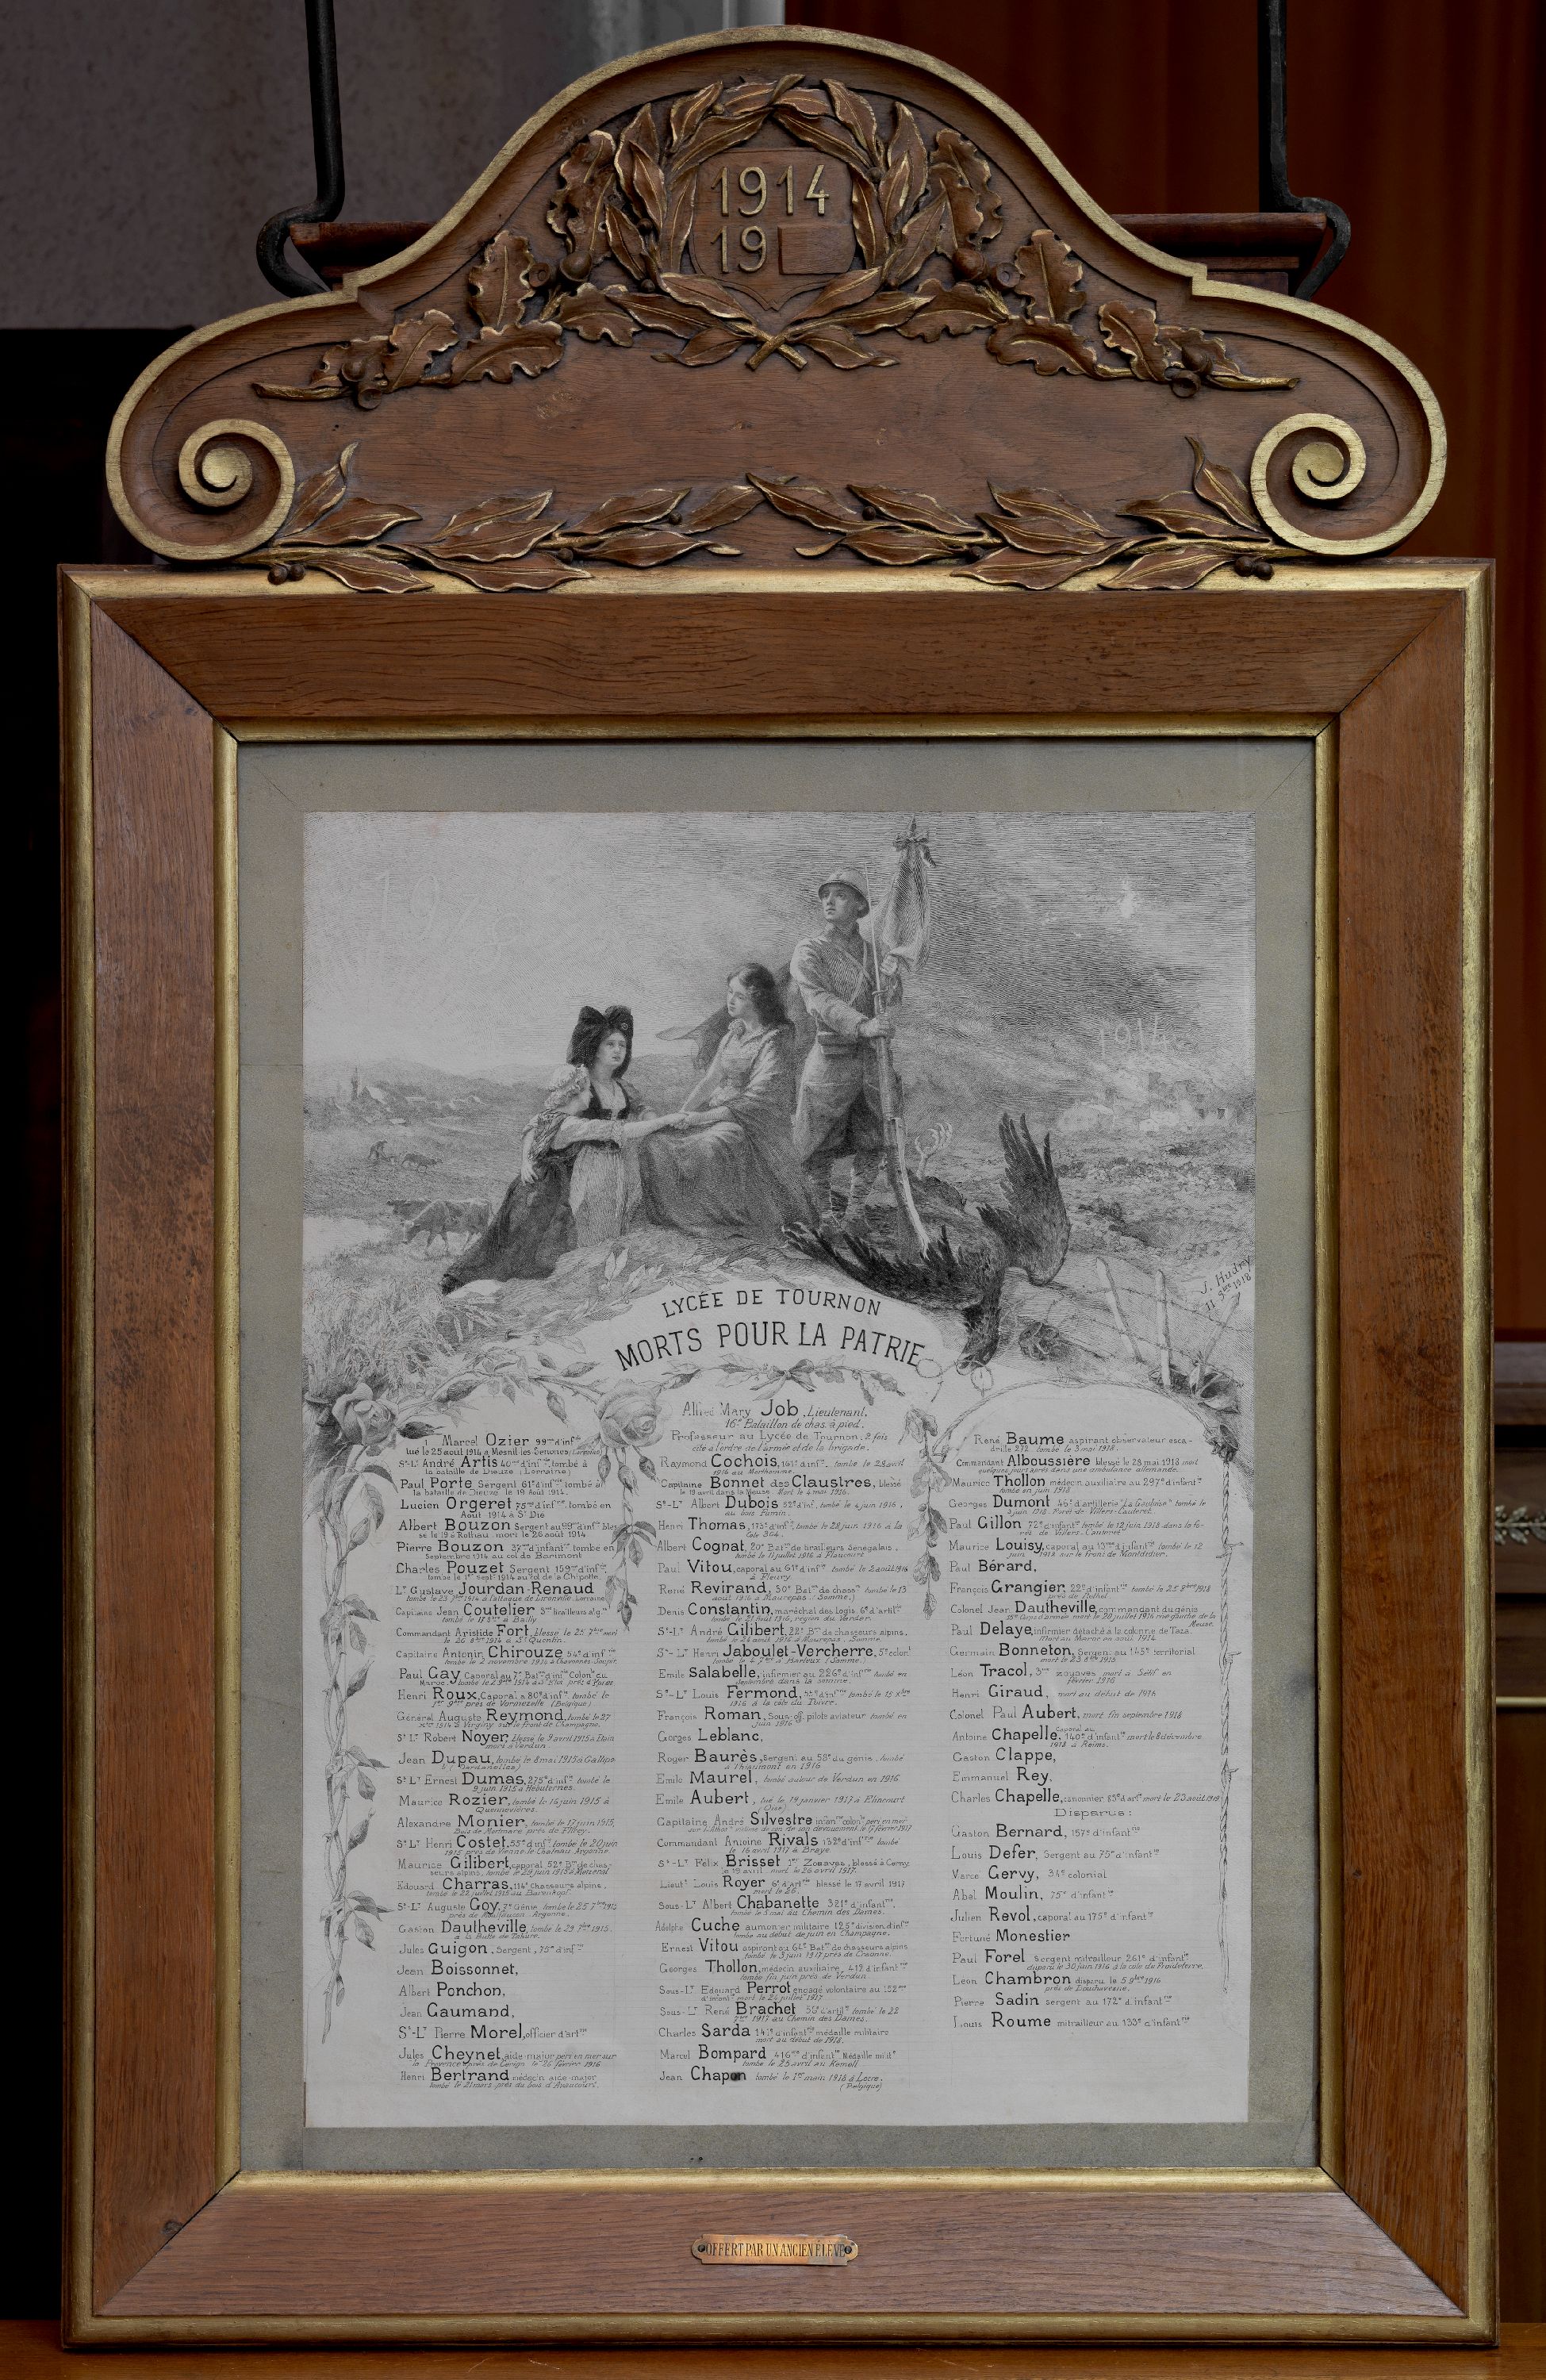 1914
19
1914
J. Hudry
LYCÉE DE TOURNON
MORTS POUR LA PATRIE
Marcel Ozier 99me d'infie
tué le 25 aout 1914 à
St-Lt André Artis 40me d'infie tombé à
la bataille de Dieuze (Lorraine)
Paul Porte Sergent 61e d'infie tombé à
la bataille de Dieuze le 19 Août 1914.
Lucien Orgeret 75me d'infie tombé en
Août 1914 à St Dié
Albert Bouzon Sergent au 99me d'infie
mort le 26 aout 1914
Pierre Bouzon d'infantie tombé en
Septembre 1914 au col de
Charles Pouzet Sergent 159me d'infie
tombé le 1er sept 1914 au col de la Chipotte
Lt Gustave Jourdan-Renaud
Capitaine Jean Coutelier
Commandant Aristide Fort, blessé le 25
1914 à St Quentin.
Capitaine Antonin Chirouze 54e d'infie
tombé le 2 novembre 1914 à
Paul Gay Caporal au 7e Batm d'infie Colonle du
Maroc
Henri Roux, Caporal 80e d'infie tombé le
près de (Belgique)
Général Auguste Reymond, tombé le 27
1914 à Virginy sur le front de Champagne.
St Lt Robert Noyer, blessé le 9 avril 1915 à
mort à Verdun
Jean Dupau, tombé le 8 mai 1915 à
(Dardanelles)
St Lt Ernest Dumas, 275e d'infie tombé le
9 juin 1915 à Hébuternes.
Maurice Rozier, tombé le 16 juin 1915 à
Quennevières.
Alexandre Monier, tombé le 17 juin 1915,
près de
St Lt Henri Costet, 55e d'infie tombé le 20 juin
1915 près de Vienne le Château Argonne.
Maurice Gilibert, caporal 52e Bon de chas-
seurs alpins, tombé le
Edouard Charras, 114e chasseurs alpins,
tombé le 22 juillet 1915 au
St-Lt Auguste Goy, 7e Génie, tombé le 25 7bre 1915
près de Argonne.
Gaston Daultheville, tombé le 29 7bre 1915,
à la Butte de Tahure.
Jules Guigon, Sergent, 75e d'infie
Jean Boissonnet,
Albert Ponchon,
Jean Gaumand,
St-Lt Pierre Morel, officier d'artie
Jules Cheynet, aide-major péri en mer sur
la Provence le 26 février 1916
Henri Bertrand médecin aide-major
tombé le 21 mars près du bois
Alfred Mary Job, Lieutenant,
16e Bataillon de chas. à pied.
Professeur au Lycée de Tournon: 2 fois
cité à l'ordre de l'armée et de la brigade.
Raymond Cochois, 161e d'infie tombé le 28 avril
1916 au Morthomme.
Capitaine Bonnet des Claustres, blessé
Mort le 4 mai 1916.
St-Lt Albert Dubois 52e d'inf. tombé le 4 juin 1916,
au bois Fumin.
Henri Thomas, 175e d'infie, tombé le 28 juin 1916 à la
Cote 304.
Albert Cognat, 20e Batm de tirailleurs Sénégalais,
tombé le 11 juillet 1916 à Flaucourt
Paul Vitou, caporal au 61e d'infie tombé le 2 août 1916
à Fleury
René Revirand, 30e Batm de chassrs tombé le 13
août 1916 à Maurepas (Somme).
Denis Constantin, maréchal des logis 6e d'artie
tombé le 21 août 1916, région de Verdun.
St-Lt André Gilibert, 22e Bm de chasseurs alpins,
tombé le 24 août 1916 à Maurepas, Somme.
St-Lt Henri Jaboulet-Vercherre, 5e colonl
tombé le 4 7bre à Barleux (Somme).
Emile Salabelle, infirmier au 226e d'infie tombé en
septembre dans la Somme.
St-Lt Louis Fermond, d'infie tombé le 15 Xbre
1916 à la côte du Poivre.
François Roman, Sous-off. pilote aviateur tombé en
juin 1916
Gorges Leblanc,
Royer Baurès, Sergent au 58e du génie, tombé
à Thiaumont en 1916
Emile Maurel, tombé autour de Verdun en 1916
Emile Aubert, tué le 19 janvier 1917 à Elincourt
(Oise)
Capitaine André Silvestre infie colonle péri en mer
Commandant Antoine Rivals 132e d'infie tombé
le 16 avril 1917 à Braye
St-Lt Félix Brisset 1er Zouaves, blessé à Cerny
mort le 26 avril 1917.
Lieutt Louis Royer 6e d'artie blessé le 17 avril 1917
mort le 26.
Sous-Lt Albert Chabanette 321e d'infantie,
tombé le 5 mai au Chemin des Dames.
Adolphe Cuche aumonier militaire 125e division d'infie
tombé au début de juin en Champagne.
Ernest Vitou aspirant au 64e Batm de chasseurs alpins
tombé le 3 juin 1917 près de Craonne.
Georges Thollon, médecin auxiliaire, 412 d'infantie
tombé fin juin près de Verdun
Sous-Lt Edouard Perrot engagé volontaire au 152me
mort le 24 juillet 1917
Sous-Lt René Brachet d'artie tombé le 22
1917 au Chemin des Dames.
Charles Sarda d'infantie médaille militaire
mort au début de 1918.
Marcel Bompard 416me d'infantie Médaille milit
tombé le 25 avril au Kemell
Jean Chapon tombé le 1er main 1918 à Locre.
(Belgique)
René Baume aspirant observateur esca-
drille 212 tombé le 3 mai 1918.
Commandant Alboussière blessé le 28 mai 1918 mort
quelques jours après dans une ambulance allemande.
Maurice Thollon médecin auxiliaire au 297e d'infantie
tombé en juin 1918
Georges Dumont 46e d'artillerie "La Gauloise" tombé le
3 juin 1918. Forêt de Villers-Cauteret.
Paul Gillon 72e d'infantie tombé le 12 juin 1918 dans la fo-
rêt de Villers-Cauteret
Maurice Louisy, caporal au d'infantie tombé le 12
juin 1918 sur le front de Montdidier.
Paul Bérard,
François Grangier, 22e d'infantie tombé le 25 8bre 1918
près de Rethel
Colonel Jean Daultheville, commandant du génie
15e Corps d'armée mort le 20 juillet 1916 rive gauche de la
Meuse.
Paul Delaye, infirmier détaché à la colonne de Taza.
Mort au Maroc en août 1914
Germain Bonneton, Sergent au 145e territorial
mort le 23 8bre 1915
Léon Tracol, 3me zouaves mort à Sétif en
février 1916
Henri Giraud, mort au début de 1916
Colonel Paul Aubert, mort fin septembre 1918
Antoine Chapelle, caporal au 140e d'infantie mort le 8 décembre
1918 à Reims.
Gaston Clappe,
Emmanuel Rey,
Charles Chapelle, canonnier 85e d'artie mort le 23 août 1918
Disparus:
Gaston Bernard, 157e d'infantie
Louis Defer, Sergent au 75e d'infantie
Gervy, 34e colonial
Abel Moulin, 75e d'infantie
Julien Revol, caporal au 175e d'infantie
Fortuné Monestier
Paul Forel sergent mitrailleur 261e d'infantie
disparu le 30 juin 1916 à la cote de Froideterre.
Léon Chambron disparu le 5 9bre 1916
près de Bouchavesne.
Pierre Sadin sergent au 172e d'infantie
Louis Roume mitrailleur au 133e d'infantie
OFFERT PAR UN ANCIEN ÉLÈVE